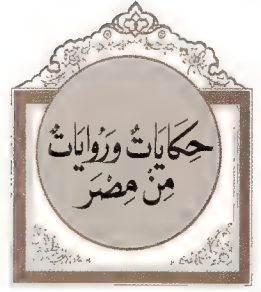 حِكَايَاتٌ وَرِوَايَاتٌ
مِنْ مِصْرَ